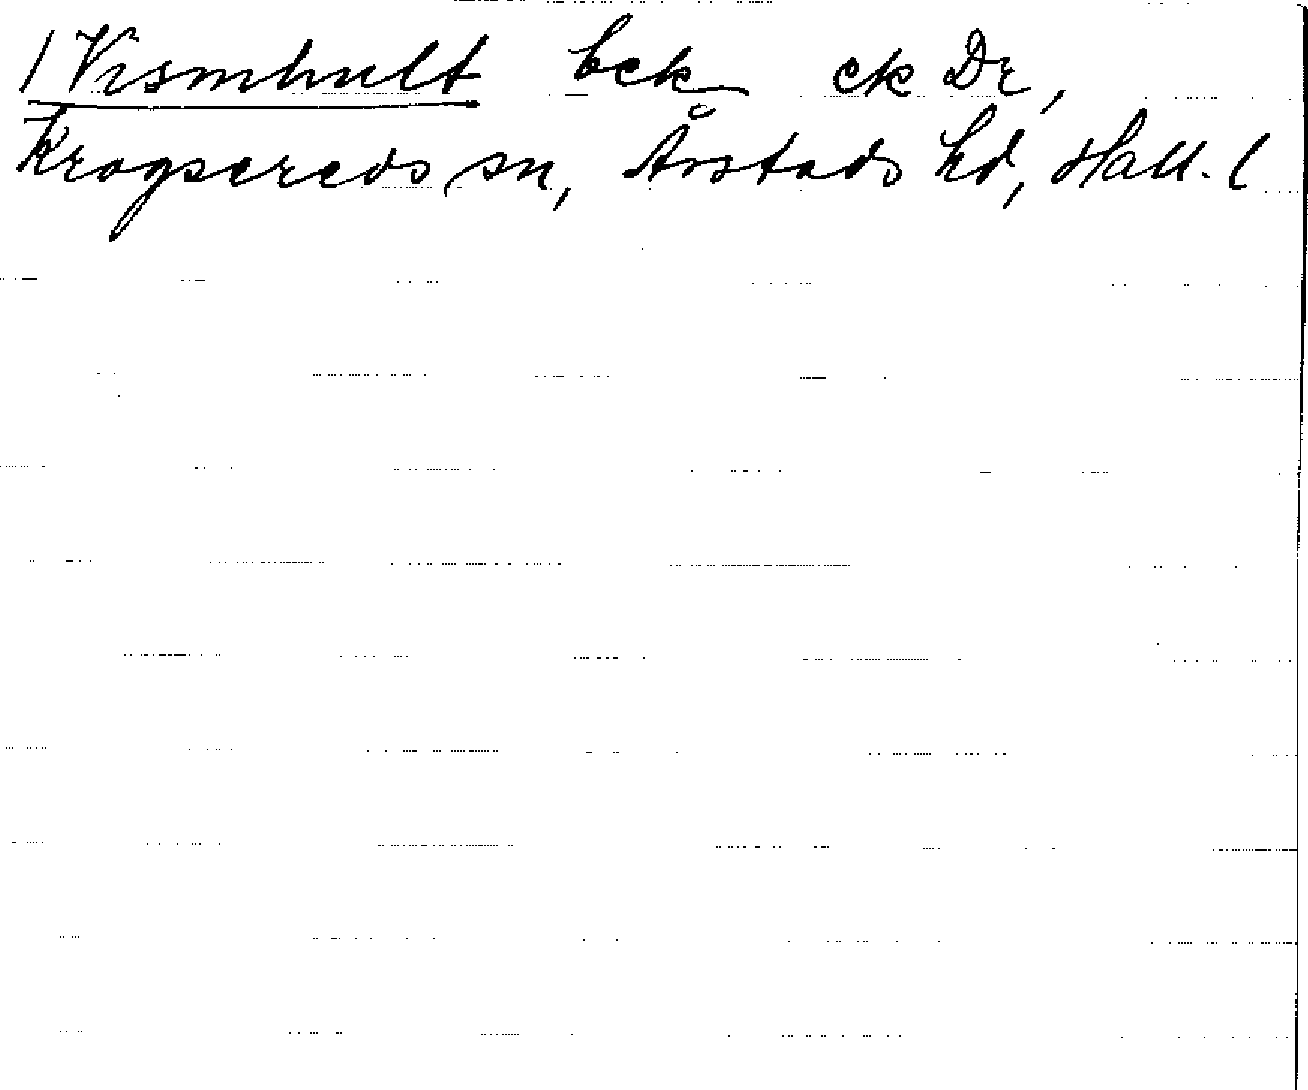 1 Vismhult bek ek Dr,
Krogsereds sn, Årstads hd, Hall. l